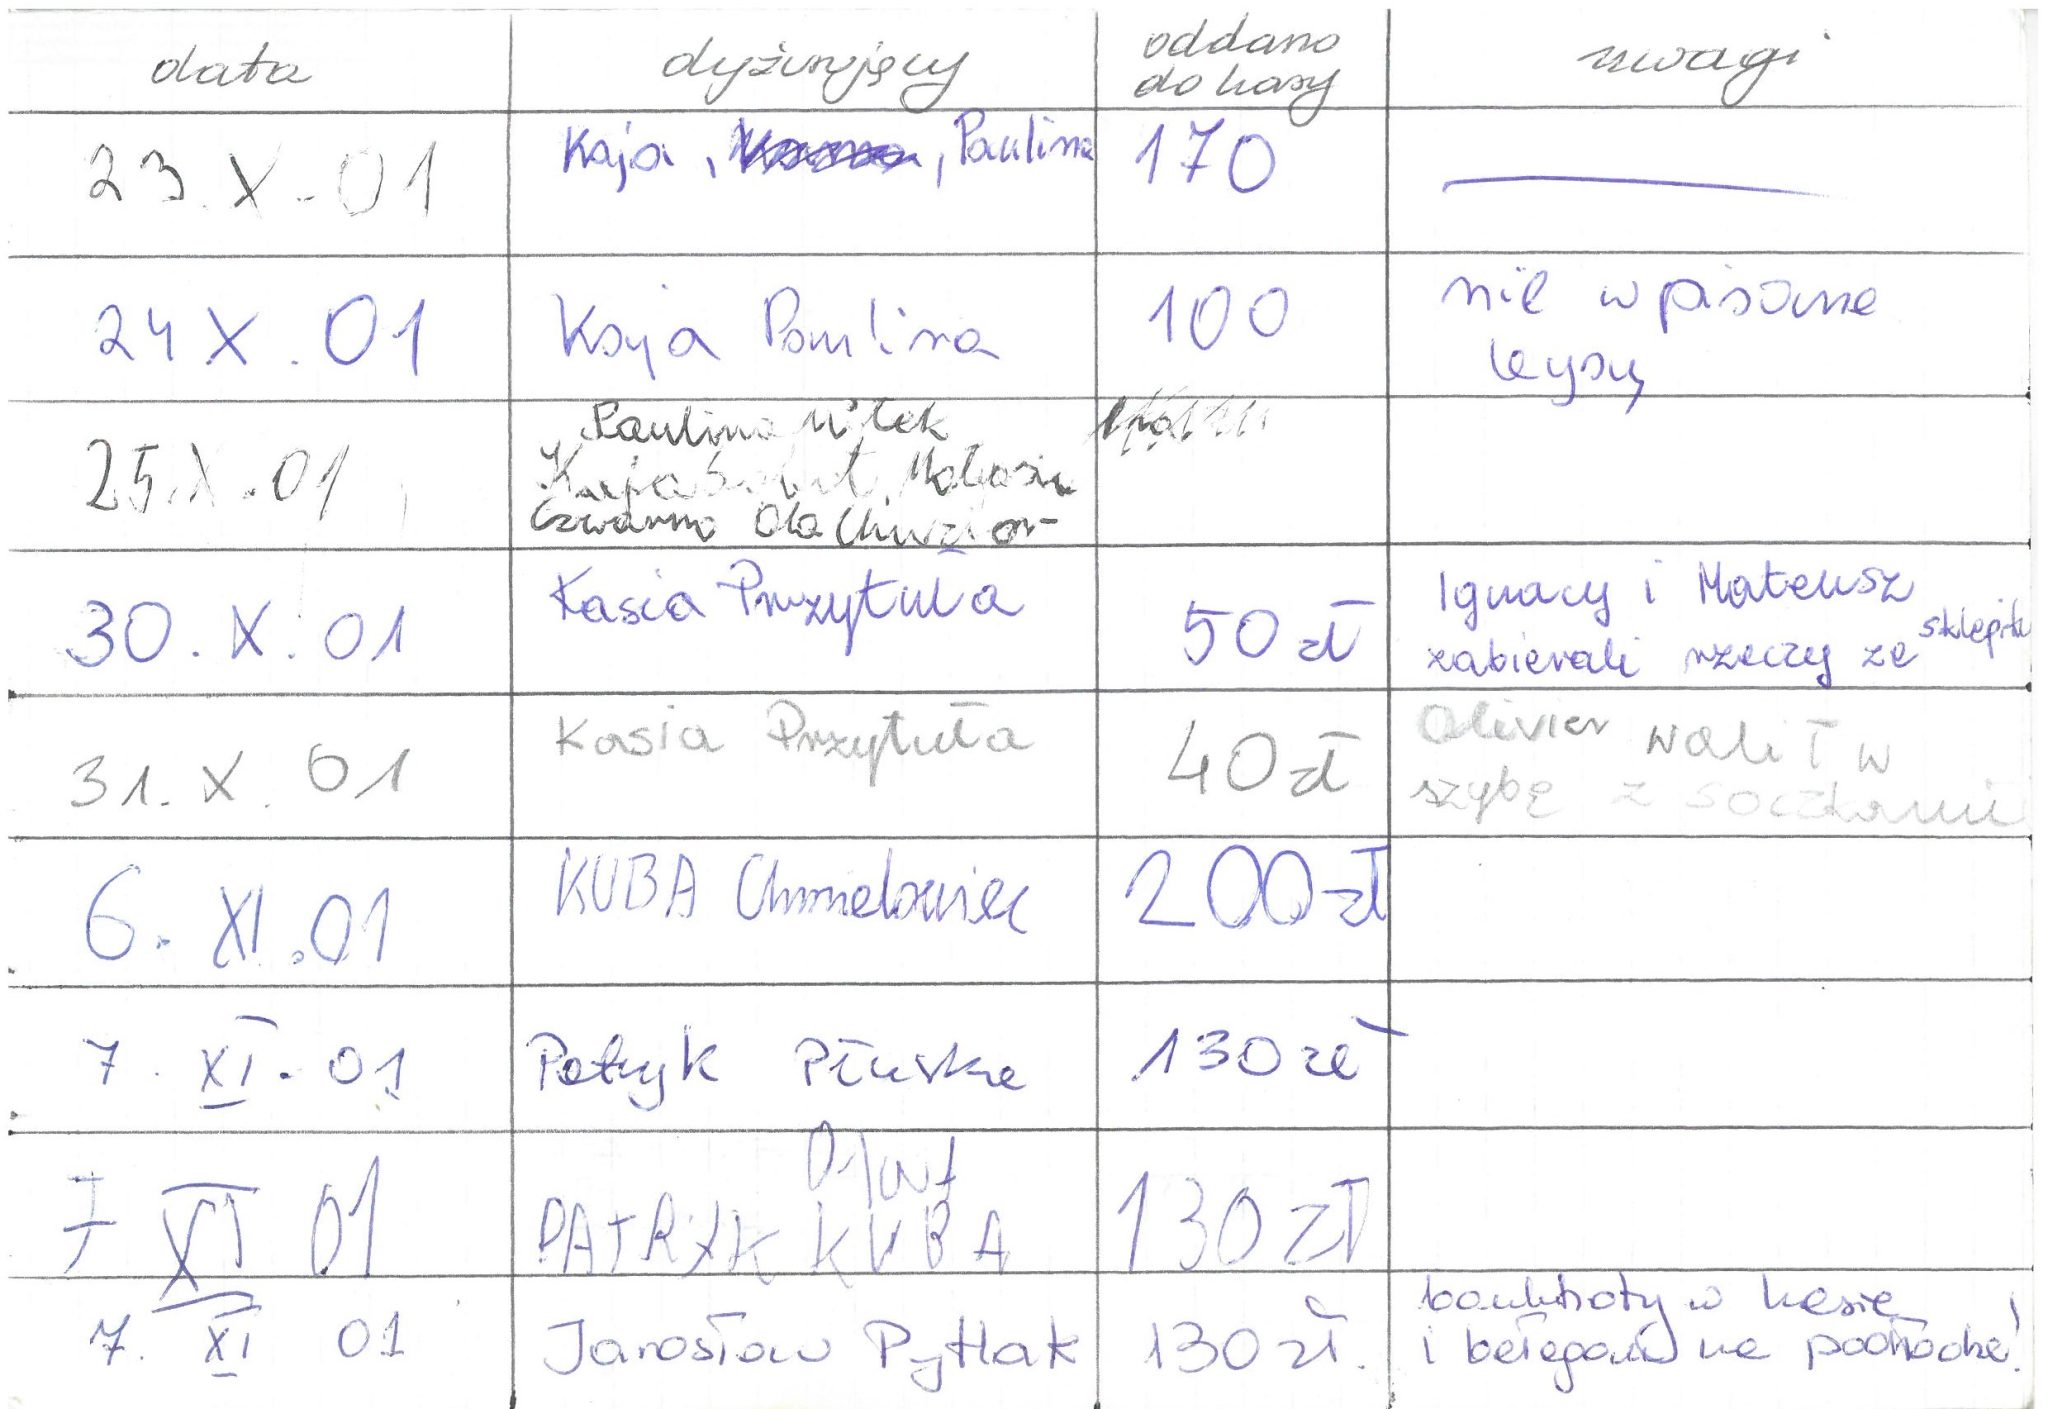 data dyżurujący oddano do kasy uwagi
23.X.01 Kaja, , Paulina 170
24 X.01 Kaja Paulina 100 nie wpisane
25.X.01 Paulina
Kaja Małgosia
Ola
30.X.01 Kasia Przytuła 50 zł Ignacy i Mateusz
zabierali rzeczy ze sklepiku
31.X.01 Kasia Przytuła 40 zł Olivier walił w
szybę z soczkami
6.XI.01 KUBA Chmielowiec 200 zł
7.XI.01 Patryk 130 zł
XI 01 PATRYK KUBA 130 zł
7. XI 01 Jarosław Pytlak 130 zł. banknoty w kasie
i bałagan na podłodze!